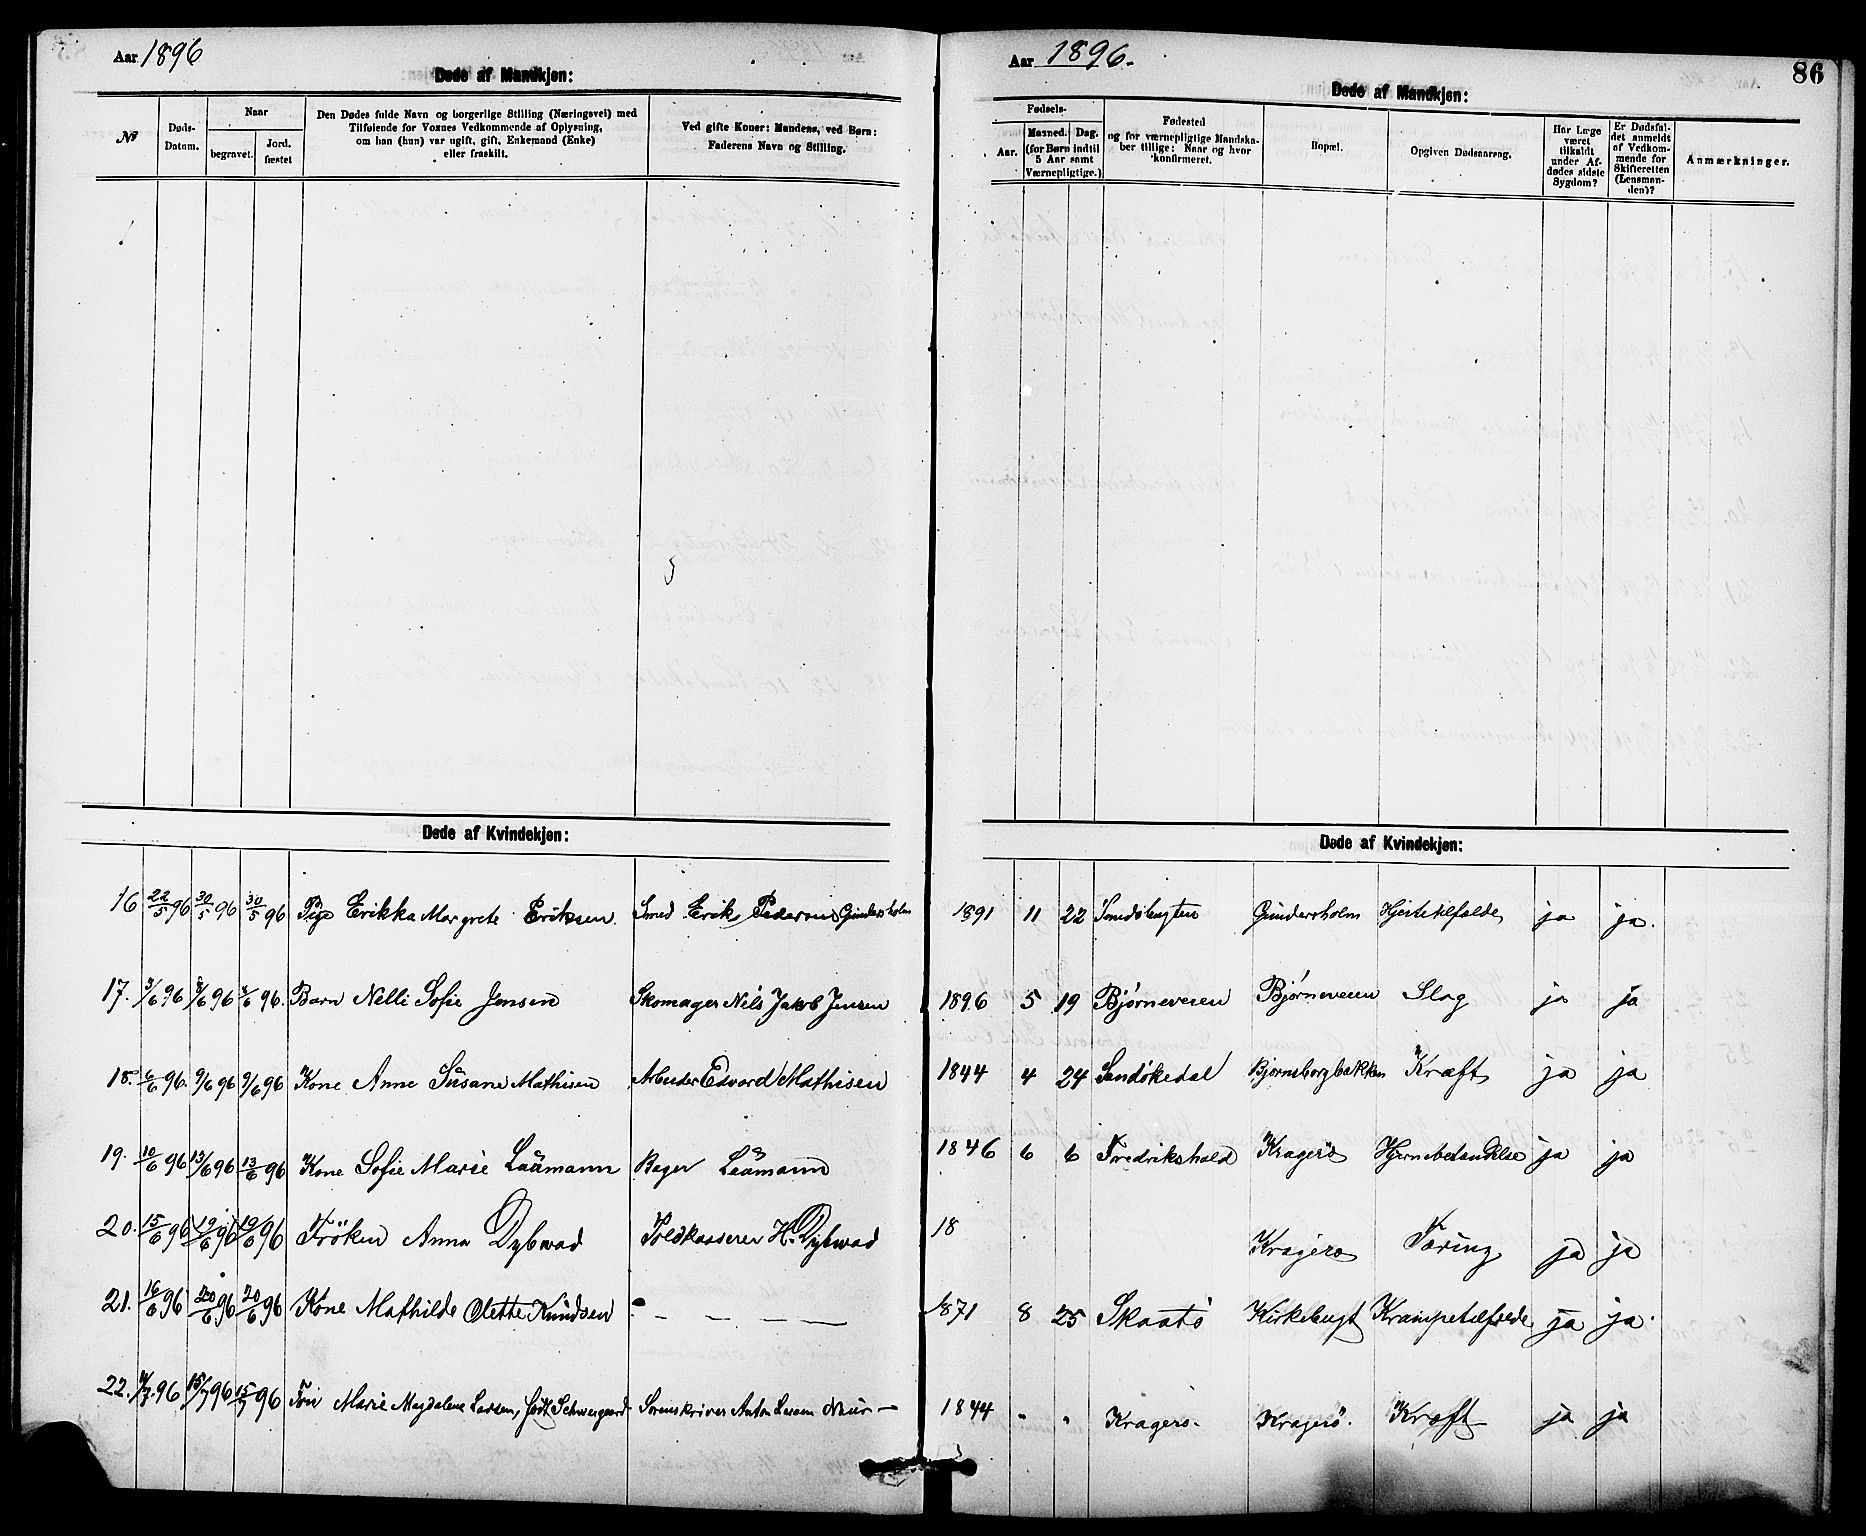 Aar 1896
Døde af Mandkjøn:
№
Døds-Datum.
Naar
begravet.
Jord. fæstet
Den Dødes fulde Navn og borgerlige Stilling (Næringsvei) med
Tilføiende for Voxnes Vedkommende af Oplysning,
om han (hun) var ugift, gift, Enkemand (Enke)
eller fraskilt.
Ved gifte Koner: Mandens, ved Børn:
Faderens Navn og Stilling.
Aar 1896.
86
Døde af Mandkjøn:
Fødsels-
Aar.
Maaned. Dag.
(for Børn indtil
5 Aar samt
Værnepligtige.)
Fødested
og for værnepligtige Mandska-
ber tillige: Naar og hvor
konfirmeret.
Bopæl.
Opgiven Dødsaarsag.
Har Læge
været
tilkaldt
under Af-
dødes sidste
Sygdom?
Er Dødsfal-
det anmeldt
af Vedkom-
mende for
Skifteretten
(Lensman-
den)?
Anmærkninger.
Døde af Kvindekjøn:
Døde af Kvindekjøn:
16 22/5 96 30/5 96 30/5 96 Pige Erikka Margrete Eriksen Smed Erik Pedersen Gundersholm 1891 11 22 Smedsbugten Gundersholm Hjertetilfælde ja ja.
17. 3/6 96 8/6 96 8/6 96. Barn Nelli Sofie Jensen Skomager Nils Jakob Jensen 1896 5 19 Bjørneveien Bjørneveien Slag ja ja
18. 6/6 96. 9/6 96 9/6 96 Kone Anne Susane Mathisen Arbeider Edvard Mathisen 1844 4 24 Sandøkedal Bjørnsborgbakken Kræft ja ja
19. 10/6 96 13/6 96 13/6 96 Kone Sofie Marie Laumann Bager Laumann 1846 6 6 Fredrikshald Kragerø Hjernebetændelse ja ja
20. 15/6 96 19/6 96 19/6 96 Fröken Anna Dybwad Toldkasserer H. Dybwad 18 Kragerø Tæring ja ja
21. 16/6 96 20/6 96 20/6 96 Kone Mathilde Olette Knudsen – – – – 1871 8 25 Skaatø Kirkebugt Krampetilfælde ja ja.
22. 11/7 96 15/7 96 15/7 96 Fru Marie Magdalene Larsen, født Schweigaard Sorenskriver Anton Larsen 1844 " " Kragerö. Kragerö. Kræft ja ja